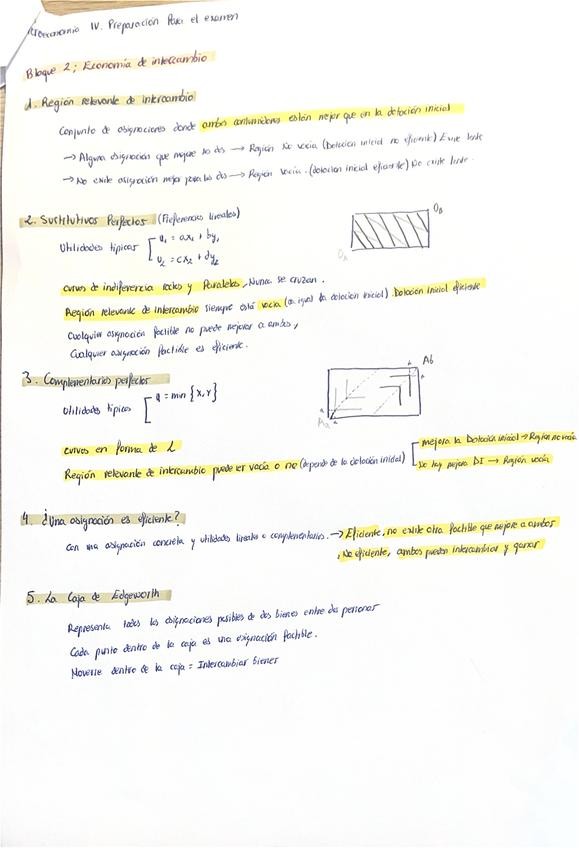 Microeconomía IV. Preparación Para el examen
Bloque 2; Economía de intercambio
1. Región relevante de intercambio
Conjunto de asignaciones donde ambos consumidores están mejor que en la dotación inicial
→ Alguna asignación que mejore los dos → Región No vacía (Dotación inicial no eficiente) Existe lente
→ No existe asignación mejor para los dos → Región vacía. (dotación inicial eficiente) No existe lente.
2. Sustitutivos Perfectos (Preferencias lineales)
Utilidades típicas [ u₁ = ax₁ + by₁
u₂ = cx₂ + dy₂
OB
OA
curvas de indiferencia rectas y Paralelas, Nunca se cruzan.
Región relevante de intercambio siempre está vacía (o igual la dotación inicial). Dotación inicial eficiente
Cualquier asignación factible no puede mejorar a ambos,
Cualquier asignación factible es eficiente.
3. Complementarios perfectos
Utilidades típicas [ u = min {x, y}
Ab
Aa
curvas en forma de L
Región relevante de intercambio puede ser vacía o no (depende de la dotación inicial) [ mejora la Dotación inicial → Región no vacía
No hay mejora DI → Región vacía
4. ¿Una asignación es eficiente?
Con una asignación concreta y utilidades lineales o complementarios. → Eficiente, no existe otra factible que mejore a ambos
, No eficiente, ambos pueden intercambiar y ganar
5. La Caja de Edgeworth
Representa todas las asignaciones posibles de dos bienes entre dos personas
Cada punto dentro de la caja es una asignación factible.
Moverse dentro de la caja = Intercambiar bienes